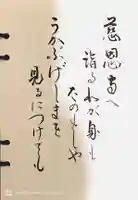 慈恩寺へ
詣るわが身も
たのもしや
うかぶげしきを
見るにつけても